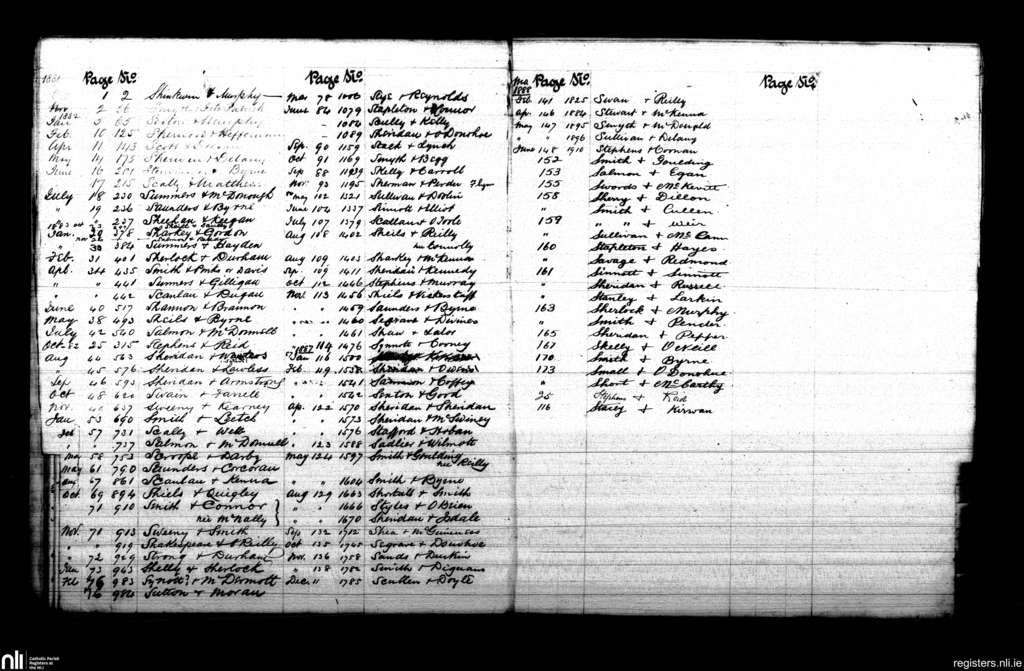 1881 Page No
1 2 Murphy
Nov 2
1882 3 65 Sexton & Murphy
Feb 10 125
Apr 11 143 Scott &
May 14 175 Sherwin & Delany
June 16 201 & Byrne
17 215 Scally & Matthews
July 18 230 Summers & McDonough
" 19 236 Saunders & Byrne
Sheehan & Keegan
Jan. 30 378 Sharkey & Gordon
" 30 384 Summers & Hayden
Feb. 31 401 Sherlock & Durham
Apl. 34 435 Smith & Davis
" " 441 Sumers & Gilligan
" " 442 Scanlan & Dugan
June 40 517 Shannon & Brannon
May 38 493 Sheils & Byrne
July 42 540 Salmon & McDonnell
Oct 82 25 315 Stephens & Reid
Aug 44 563 Sheridan &
" 45 576 Sheridan & Lawless
Sep 46 593 Sheridan & Armstrong
Oct 48 620 Swain & Farrell
Nov. 637 Sweeny & Kearney
Jan 53 690 Smith & Leetch
Feb 57 731 Scally & Webb
" " 737 Salmon & McDonnell
Mar 58 753 Scroope & Darby
May 61 790 Saunders & Corcoran
Aug 67 861 Scanlan & Kenna
Oct. 69 894 Shiels & Quigley
" 71 910 Smith & Connor
nee McNally
Nov. 71 913 Sweeny & Smith
" " 919 Shakespeare & O'Reilly
" 72 929 Strong & Durham
Jan 73 963 Shelly & Sherlock
Feb 76 983 & McDermott
76 984 Sutton & Moran
Page No.
Mar 78 1006 & Reynolds
June 84 1079 Stapleton & Connor
" 1084 Scully & Kelly
" 1089 Sheridan & O'Donohoe
Sep. 90 1159 Stack & Lynch
Oct 91 1169 Smyth & Begg
Sep 88 1139 Skelly & Carroll
Nov. 93 1195 Sherman &
May 102 1321 Sullivan & Devlin
June 104 1337 Sinnott & Elliot
July 107 1379 Scallan & O'Toole
Aug 108 1402 Sheils & Reilly
nee Connolly
Aug 109 1403 Sharkey & McKenna
Sep. 109 1411 Sheridan & Kennedy
Oct 112 1446 Stephens & Murray
Nov. 113 1456 Sheils & Vickerstaff
" " 1459 Saunders & Byrne
" " 1460 Segrave & Divines
" " 1461 Shaw & Lalor
1887 114 1476 Synnott & Cooney
Jan 116 1500
Feb. 119 1538 Sheridan &
" " 1541 & Coffey
" " 1542 Sexton & Good
Ap. 122 1570 Sheridan & Sheridan
" " 1573 Sheridan & McSwiney
" " 1576 Stafford & Hoban
" 123 1588 Sadlier & Wilmott
May 124 1597 Smith & Goulding
nee Reilly
" " 1604 Smith & Byrne
Aug 129 1663 Shortall & Smith
" " 1666 Styles & O'Brien
" " 1670 Sheridan & Isdale
Sep 132 1712 Shea & McGuinness
Oct 135 1745 Segrave & Donohoe
Nov. 136 1758 Sands & Durkin
" 138 1782 Smith & Dignam
Dec " 1785 Scullen & Doyle
Mar 1888 Page No.
Feb 141 1825 Swan & Reilly
Apr 146 1884 Stewart & McKenna
May 147 1895 Smyth & McDonald
" " 1896 Sullivan & Delany
June 148 1910 Stephens & Cornan
152 Smith & Goulding
153 Salmon & Egan
155 Swords & McKevitt
158 Sherry & Dillon
" Smith & Cullen
159 " & Weir
" Sullivan & McCann
160 Stapleton & Hayes
" Savage & Redmond
161 Sinnott & Sinnott
" Sheridan & Russell
" Stanley & Larkin
163 Sherlock & Murphy
" Smith & Pender
165 Sheridan & Pepper
167 Skelly & O'Neill
170 Smith & Byrne
173 Small & O'Donohoe
" Short & McCarthy
25 Stephens & Reid
116 Stacey & Kirwan
Page No.
nli
Catholic Parish
Registers at
the NLI
registers.nli.ie